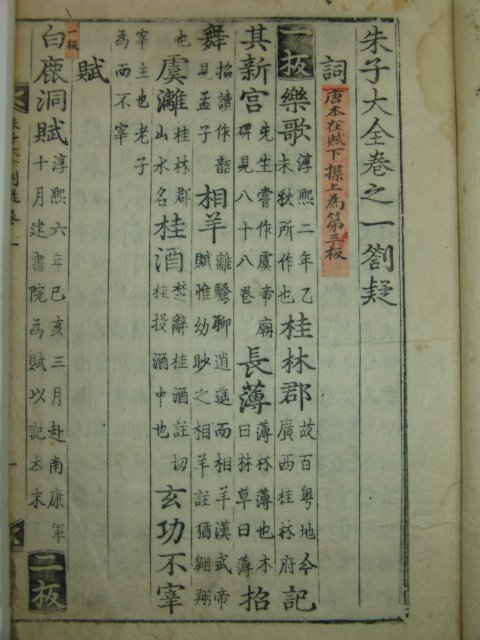 朱子大全卷之一劄疑
詞 唐本在賦下操上為第三板
一板 樂歌 淳熙二年乙未秋所作也 桂林郡 故百粤地今廣西桂林府 記
其新宫 先生嘗作虞帝廟碑見八十八卷 長薄 薄林薄也木曰林草曰薄 招
舞 招讀作韶見孟子 相羊 離騷聊逍遥而相羊漢武帝賦惟幼眇之相羊註猶翺翔
也 虞灕 桂林郡山水名 桂酒 楚辭桂酒註切桂投酒中也 玄功不宰
宰主也老子為而不宰
賦
一板 白鹿洞賦 淳熙六年己亥三月赴南康軍十月建書院為賦以記本末 二板